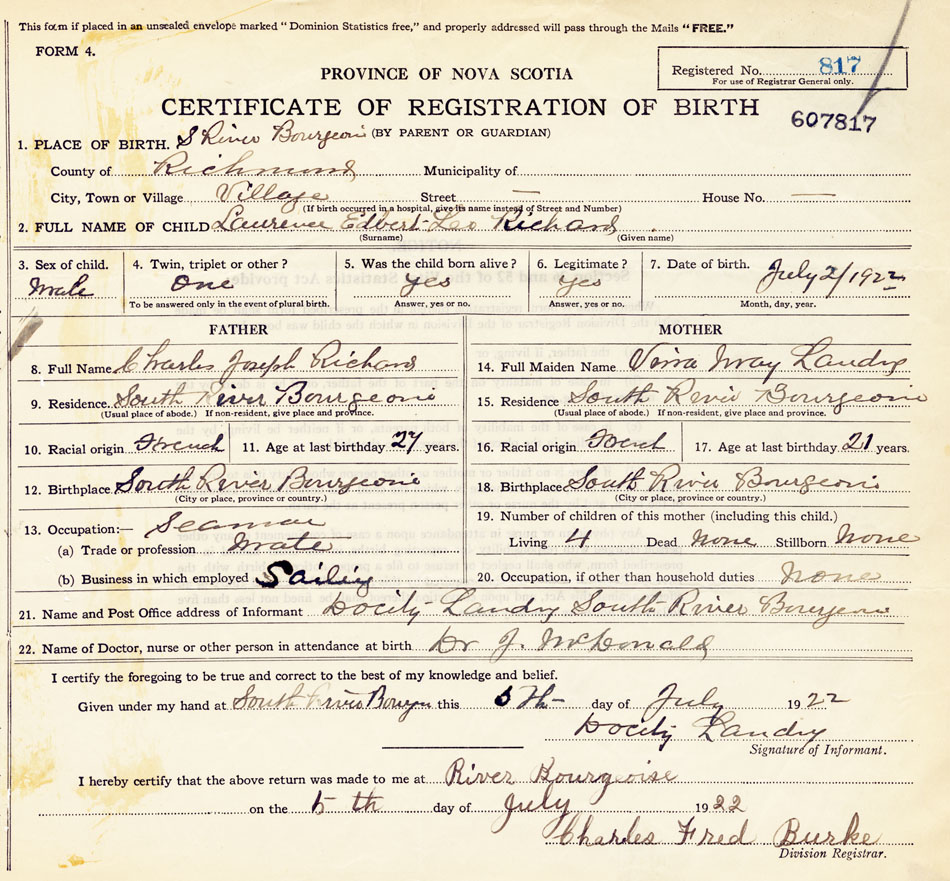 This form if placed in an unsealed envelope marked "Dominion Statistics free," and properly addressed will pass through the Mails "FREE."
FORM 4.
PROVINCE OF NOVA SCOTIA
Registered No. 817
For use of Registrar General only.
CERTIFICATE OF REGISTRATION OF BIRTH
607817
(BY PARENT OR GUARDIAN)
1. PLACE OF BIRTH. S River Bourgeois
County of Richmond Municipality of
City, Town or Village Village Street — House No. —
(If birth occurred in a hospital, give its name instead of Street and Number)
2. FULL NAME OF CHILD Laurence Edbert Leo Richard
(Surname) (Given name)
3. Sex of child. Male
4. Twin, triplet or other? One
To be answered only in the event of plural birth.
5. Was the child born alive? yes
Answer, yes or no.
6. Legitimate? yes
Answer, yes or no.
7. Date of birth. July 2/1922
Month, day, year.
FATHER
8. Full Name Charles Joseph Richard
9. Residence. South River Bourgeois
(Usual place of abode.) If non-resident, give place and province.
10. Racial origin French 11. Age at last birthday 27 years.
12. Birthplace South River Bourgeois
(City or place, province or country.)
13. Occupation:— Seaman
(a) Trade or profession Mate
(b) Business in which employed
MOTHER
14. Full Maiden Name May Landry
15. Residence South River Bourgeois
(Usual place of abode.) If non-resident, give place and province.
16. Racial origin French 17. Age at last birthday 21 years.
18. Birthplace South River Bourgeois
(City or place, province or country.)
19. Number of children of this mother (including this child.)
Living 4 Dead None Stillborn None
20. Occupation, if other than household duties None
21. Name and Post Office address of Informant Docity Landry South River Bourgeois
22. Name of Doctor, nurse or other person in attendance at birth Dr J. McDonald
I certify the foregoing to be true and correct to the best of my knowledge and belief.
Given under my hand at South River this 5th day of July 1922
Docity Landry
Signature of Informant.
I hereby certify that the above return was made to me at River Bourgeoise
on the 5 th day of July 1922
Charles Fred Burke
Division Registrar.